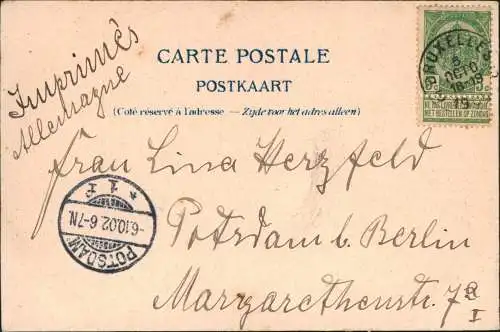 Imprimés
Allemagne
CARTE POSTALE
POSTKAART
(Coté réservé à l'adresse — Zijde voor het adres alleen)
BRUXELLES
5
OCTO
18-19
NE PAS LIVRER LE DIMANCHE
NIET BESTELLEN OP ZONDAG
Frau Lina Herzfeld
Potsdam b. Berlin
Margarethenstr. 7a
I
* 1 F
-6.10.02.6-7N.
POTSDAM